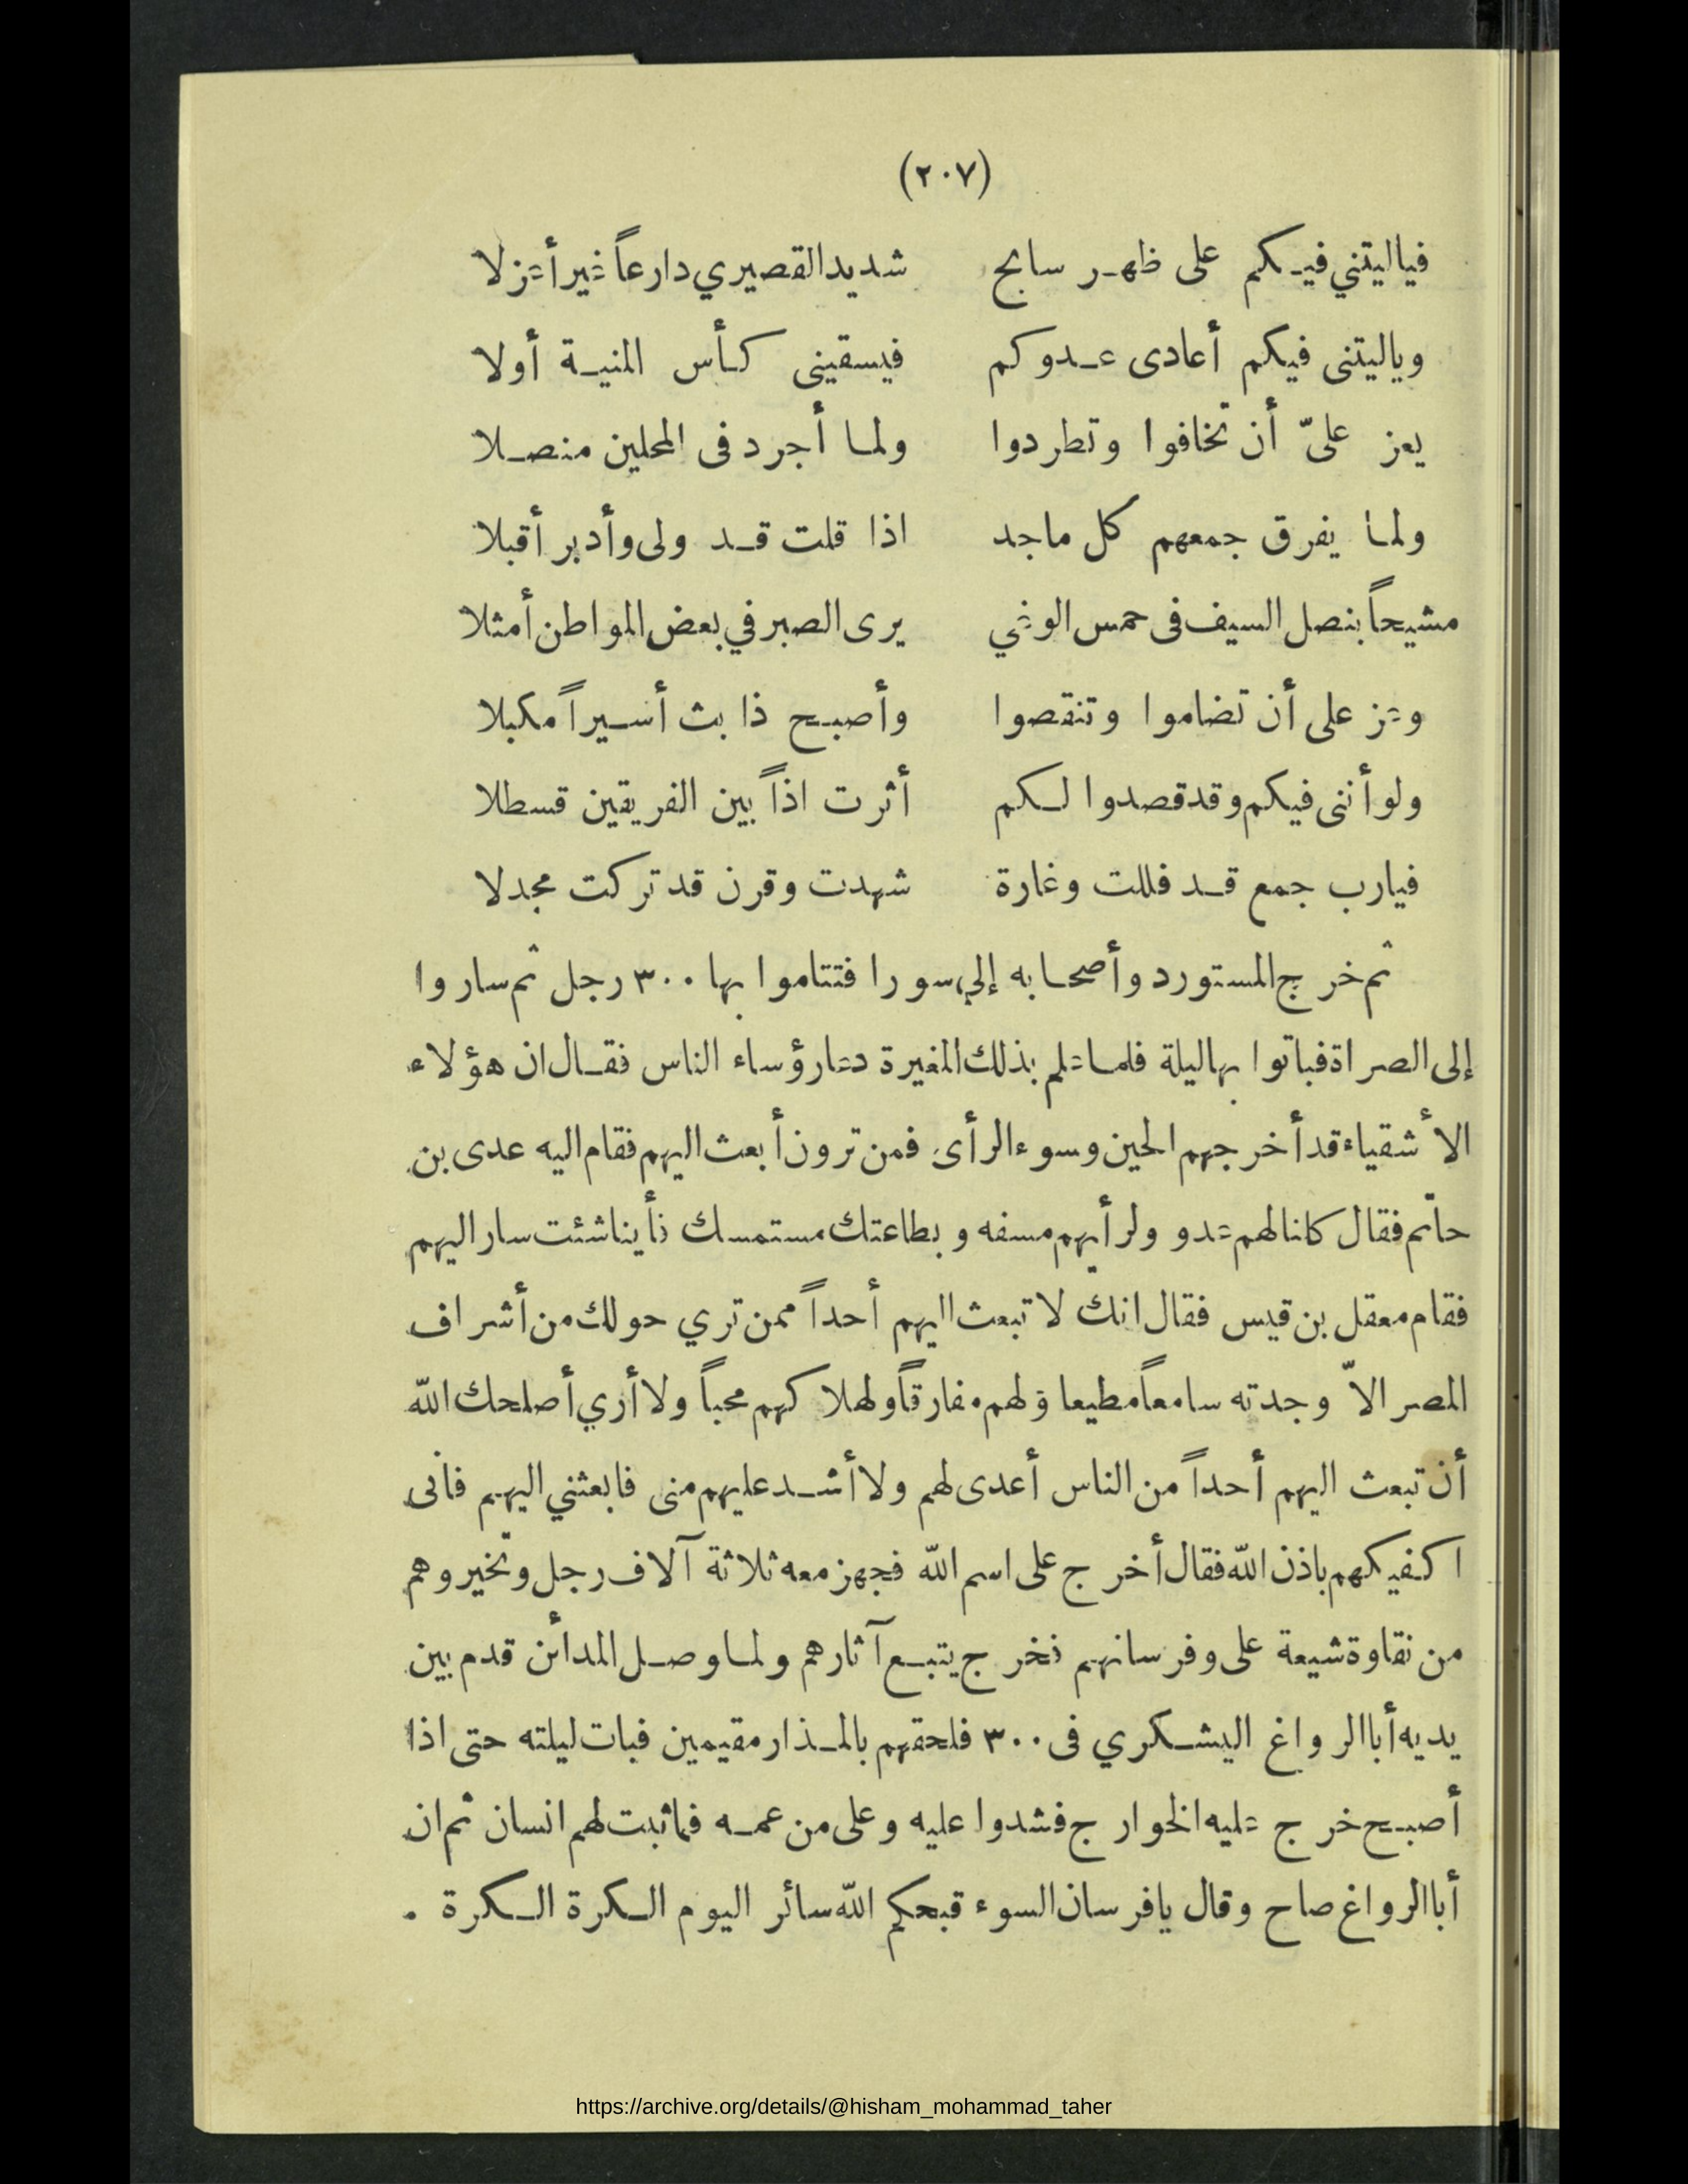 (٢٠٧)
فياليتني فيكم على ظهر سابح شديد القصيري دارعاً غير أعزلا
وياليتنى فيكم أعادى عدوكم فيسقينى كأس المنية أولا
يعز علىّ أن تخافوا وتطردوا ولما أجرد فى المحلين منصلا
ولما يفرق جمعهم كل ماجد اذا قلت قد ولى وأدبر أقبلا
مشيحاً بنصل السيف فى حمس الوغي يرى الصبر في بعض المواطن أمثلا
وعز على أن تضاموا وتنقصوا وأصبح ذا بث أسيراً مكبلا
ولو أننى فيكم وقد قصدوا لكم أثرت اذاً بين الفريقين قسطلا
فيارب جمع قد فللت وغارة شهدت وقرن قد تركت مجدلا
ثم خرج المستورد وأصحابه إلي سورا فتتاموا بها ٣٠٠ رجل ثم ساروا
إلى الصراة فباتوا بها ليلة فلما علم بذلك المغيرة دعا رؤساء الناس فقال ان هؤلاء
الأشقياء قد أخرجهم الحين وسوء الرأى فمن ترون أبعث اليهم فقام اليه عدى بن
حاتم فقال كلنا لهم عدو ولرأيهم مسفه وبطاعتك مستمسك فأينا شئت سار اليهم
فقام معقل بن قيس فقال انك لا تبعث اليهم أحداً ممن تري حولك من أشراف
المصر الاّ وجدته سامعاً مطيعا ولهم مفارقاً ولهلاكهم محباً ولا أري أصلحك الله
أن تبعث اليهم أحداً من الناس أعدى لهم ولا أشد عليهم منى فابعثني اليهم فانى
اكفيكهم باذن الله فقال أخرج على اسم الله فجهز معه ثلاثة آلاف رجل وتخيروهم
من نقاوة شيعة على وفرسانهم فخرج يتبع آثارهم ولما وصل المدائن قدم بين
يديه أبا الرواغ اليشكري فى ٣٠٠ فلحقهم بالمذار مقيمين فبات ليلته حتى اذا
أصبح خرج عليه الخوارج فشدوا عليه وعلى من عمه فما ثبت لهم انسان ثم ان
أبا الرواغ صاح وقال يافرسان السوء قبحكم الله سائر اليوم الكرة الكرة .
https://archive.org/details/@hisham_mohammad_taher